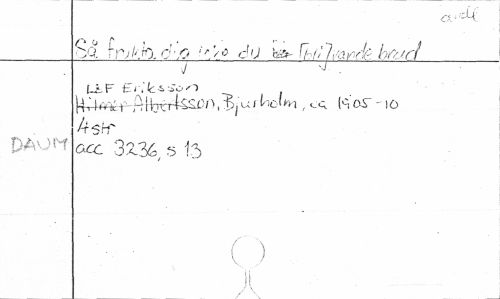 Så frukta dig icke du [bli]vande brud
Leif Eriksson
Hilmer Albertsson, Bjurholm, ca 1905-10
4 str
DAUM acc 3236, s 13